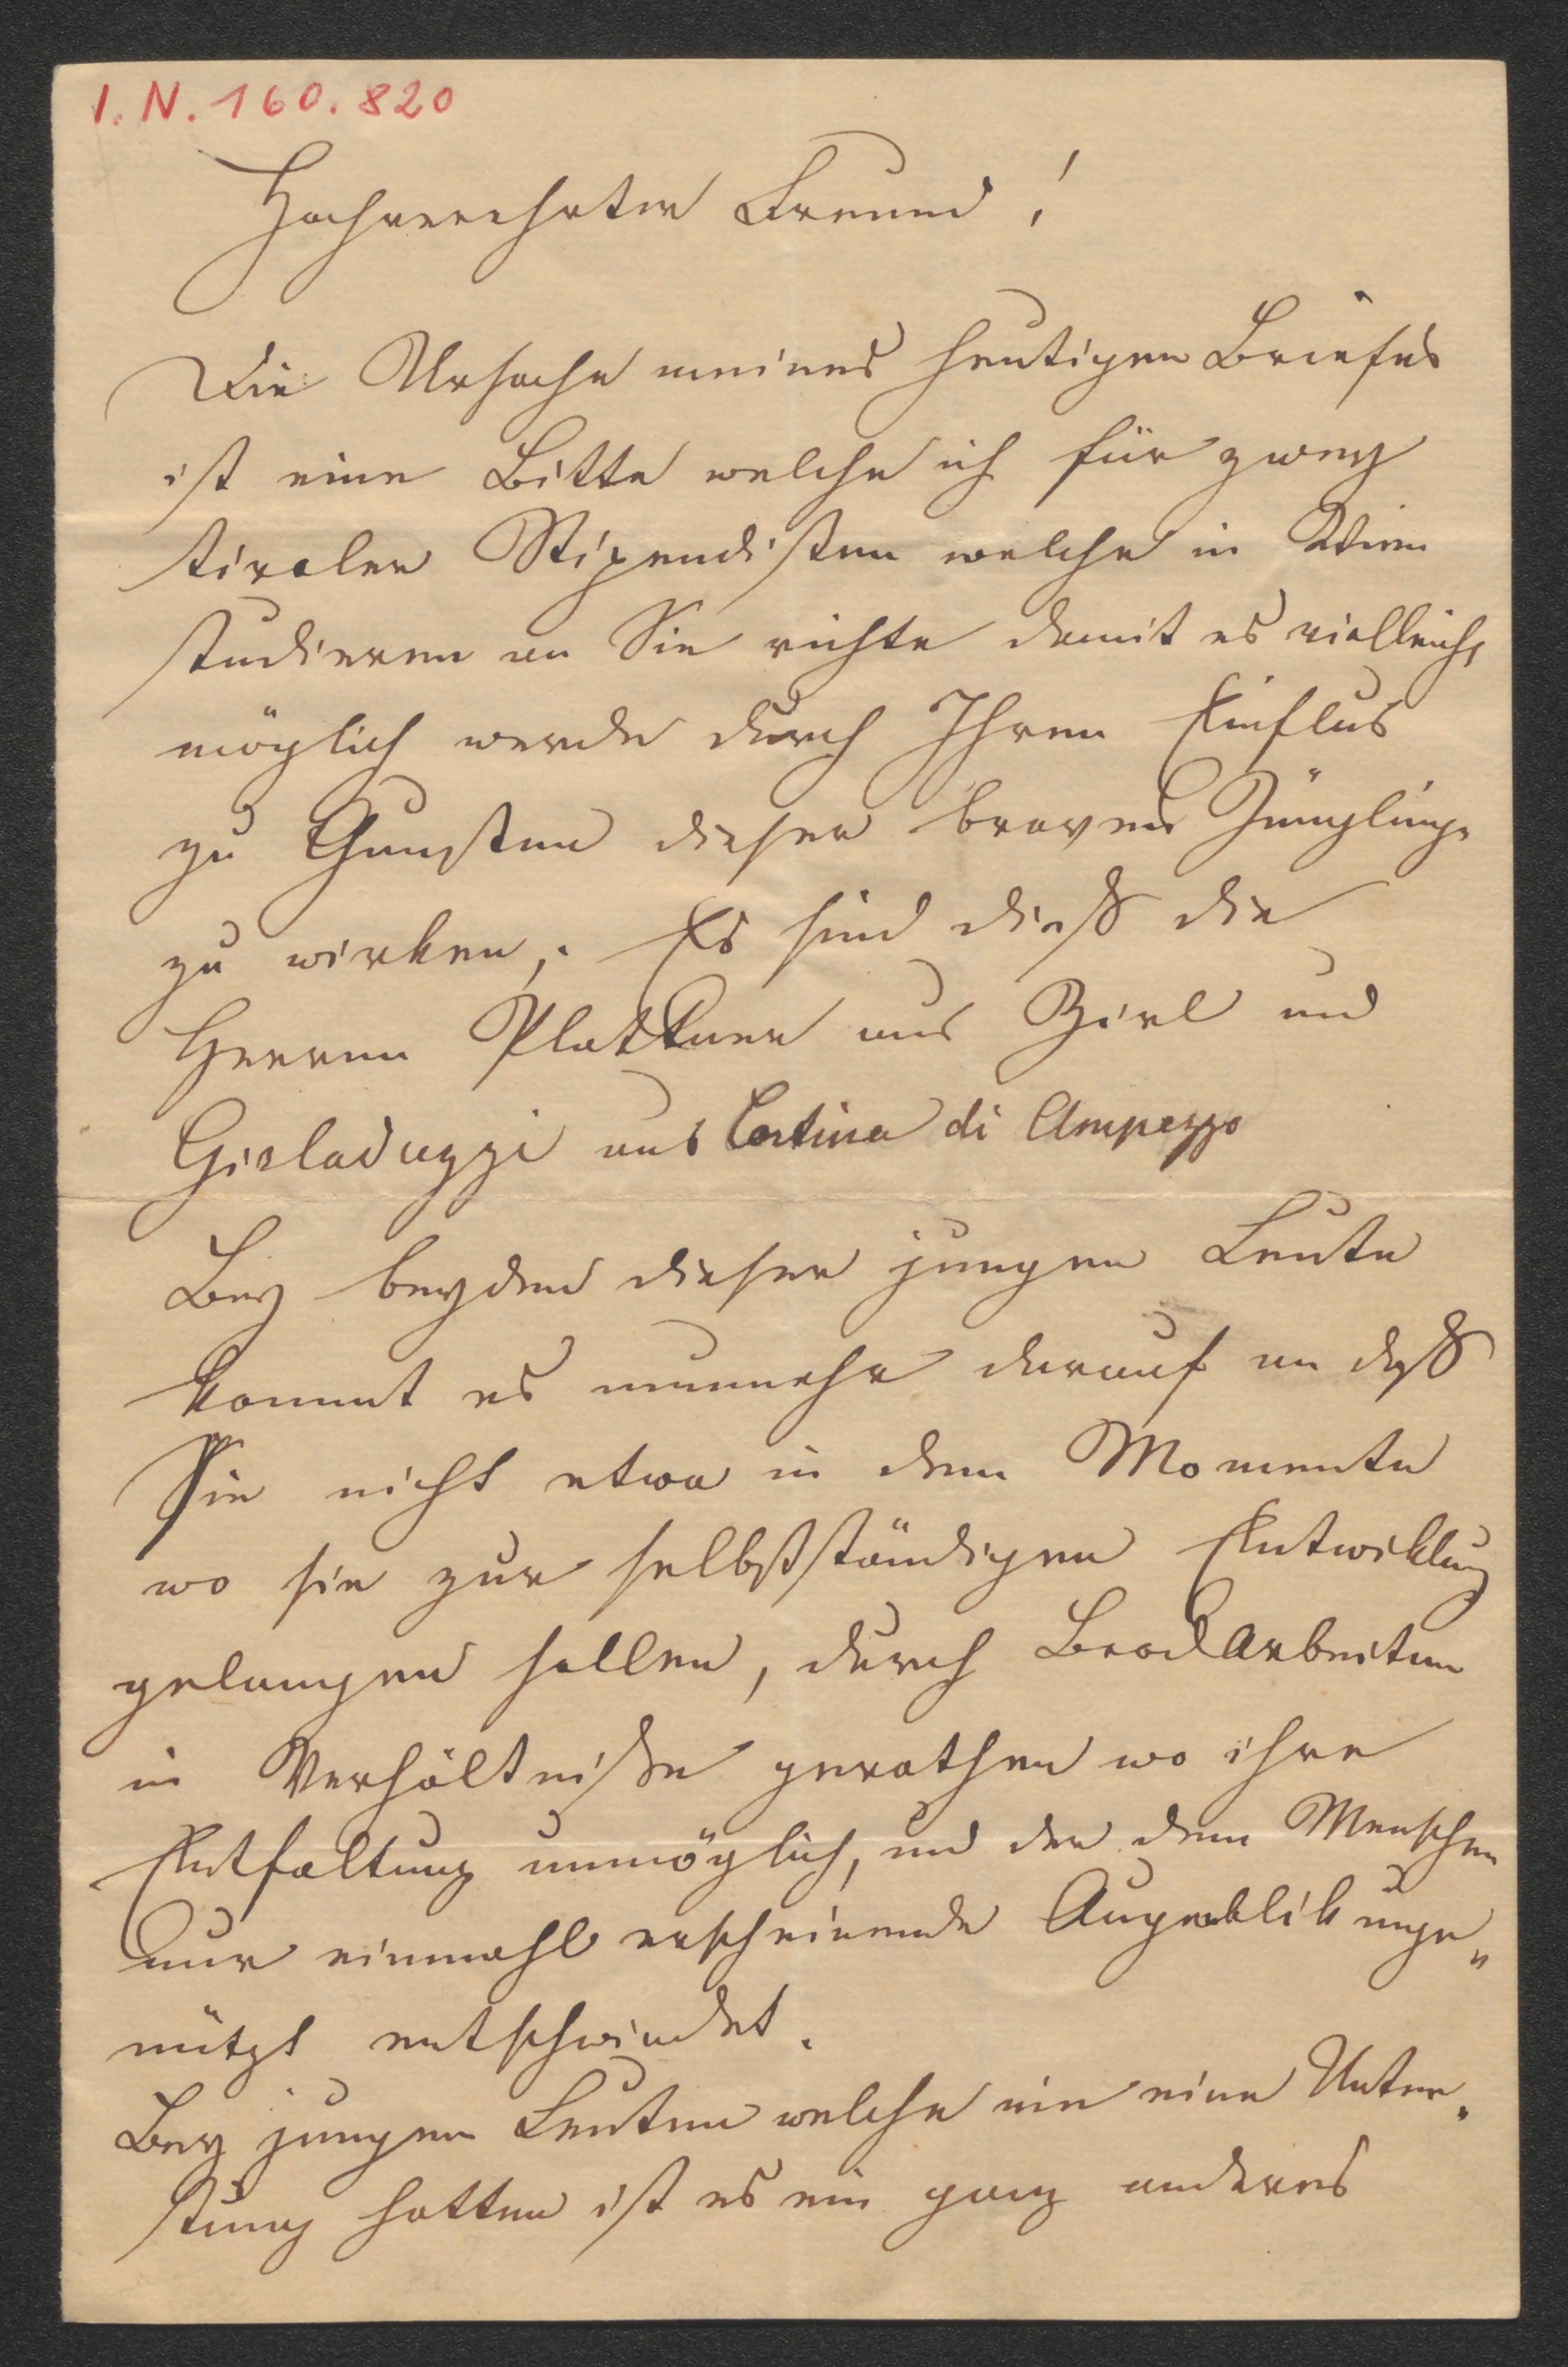 I.N. 160.820
Hochverehrter Freund!
Die Ursache meines heutigen Briefes
ist eine Bitte welche ich für zwey
tiroler Stipendisten welche in Wien
studieren an Sie richte damit es vielleicht
möglich werde durch Ihren Einflus
zu Gunsten dieser braven Jünglinge
zu wirken,. Es sind dieß die
Herren Plattner aus Zirl und
Gioladuzzi aus Cortina di Ampezzo
Bey beyden dieser jungen Leute
kommt es nunmehr darauf an daß
Sie nicht etwa in dem Momente
wo sie zur selbstständigen Entwiklung
gelangen sollen, durch Brodarbeiten
in Verhältniße gerathen wo ihre
Entfaltung unmöglich, und der dem Menschen
nur einmahl erscheinende Augenblik unge„
nützt entschwindet.
Bey jungen Leuten welche nie eine Unter„
stüng hatten ist es ein ganz anderes